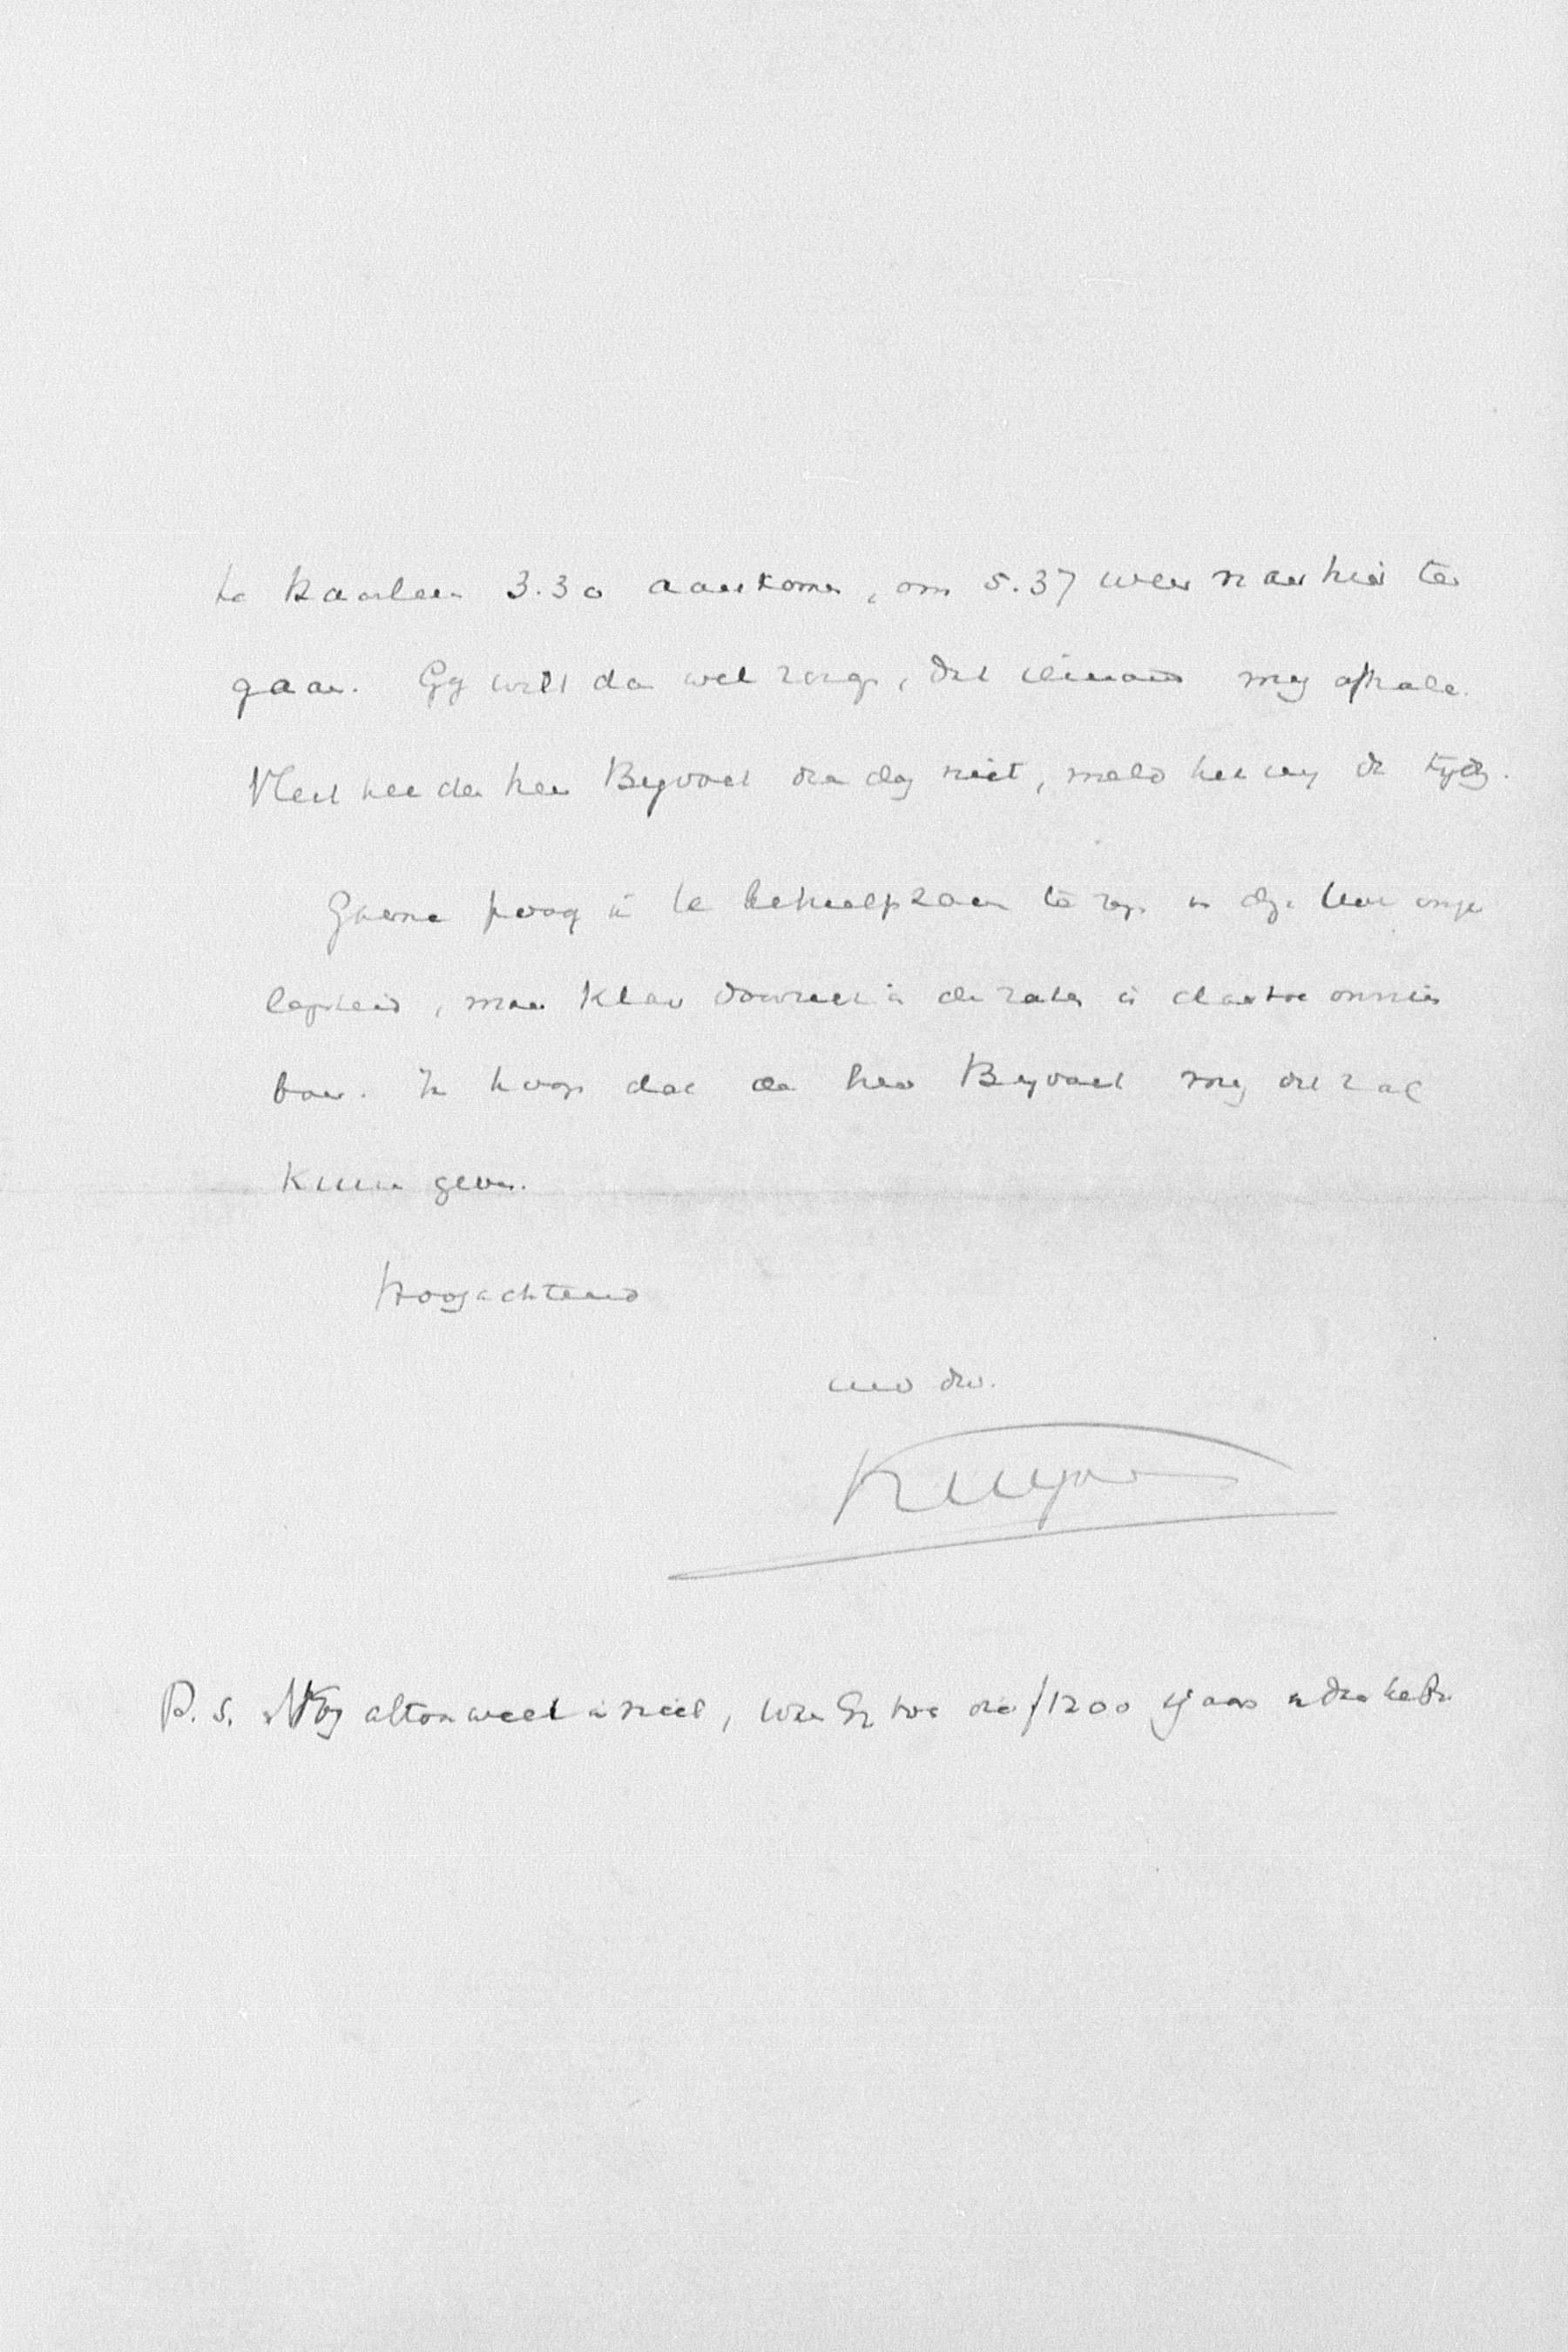 te Haarlem 3.30 aankomen, om 5.37 weer naar hier te
gaan. Gij wilt dan wel zorgen, dat iemand mij afhale.
het den heer Bijvoet dien dag niet, meld het mij dan tijdig.
Gaarne poog ik te behulpzaam te zijn in deze
legenheid, maar klaar doorzicht in de zaken is daartoe onmis
baar. Ik hoop dat de heer Bijvoet mij dit zal
kunnen geven.
Hoogachtend
uw dw.
Kuyper
P.S. Mij althans is niet, hoe die f 1200 's jaars